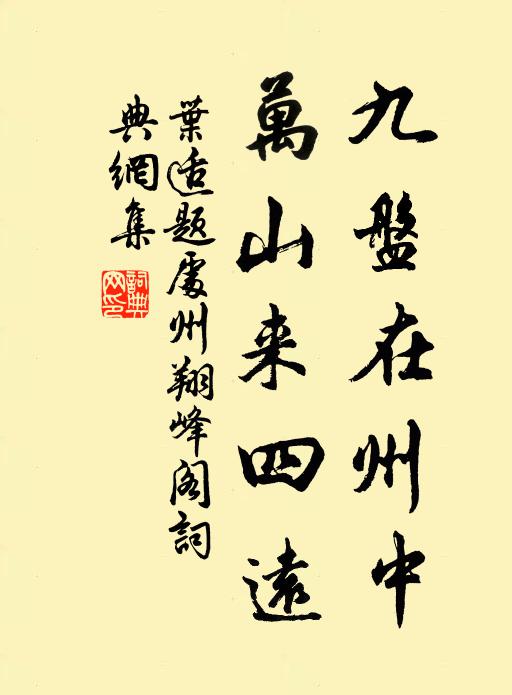 九盤在州中
萬山来四遠
葉适題處州翔峰阁詞
典網集
詞典网印